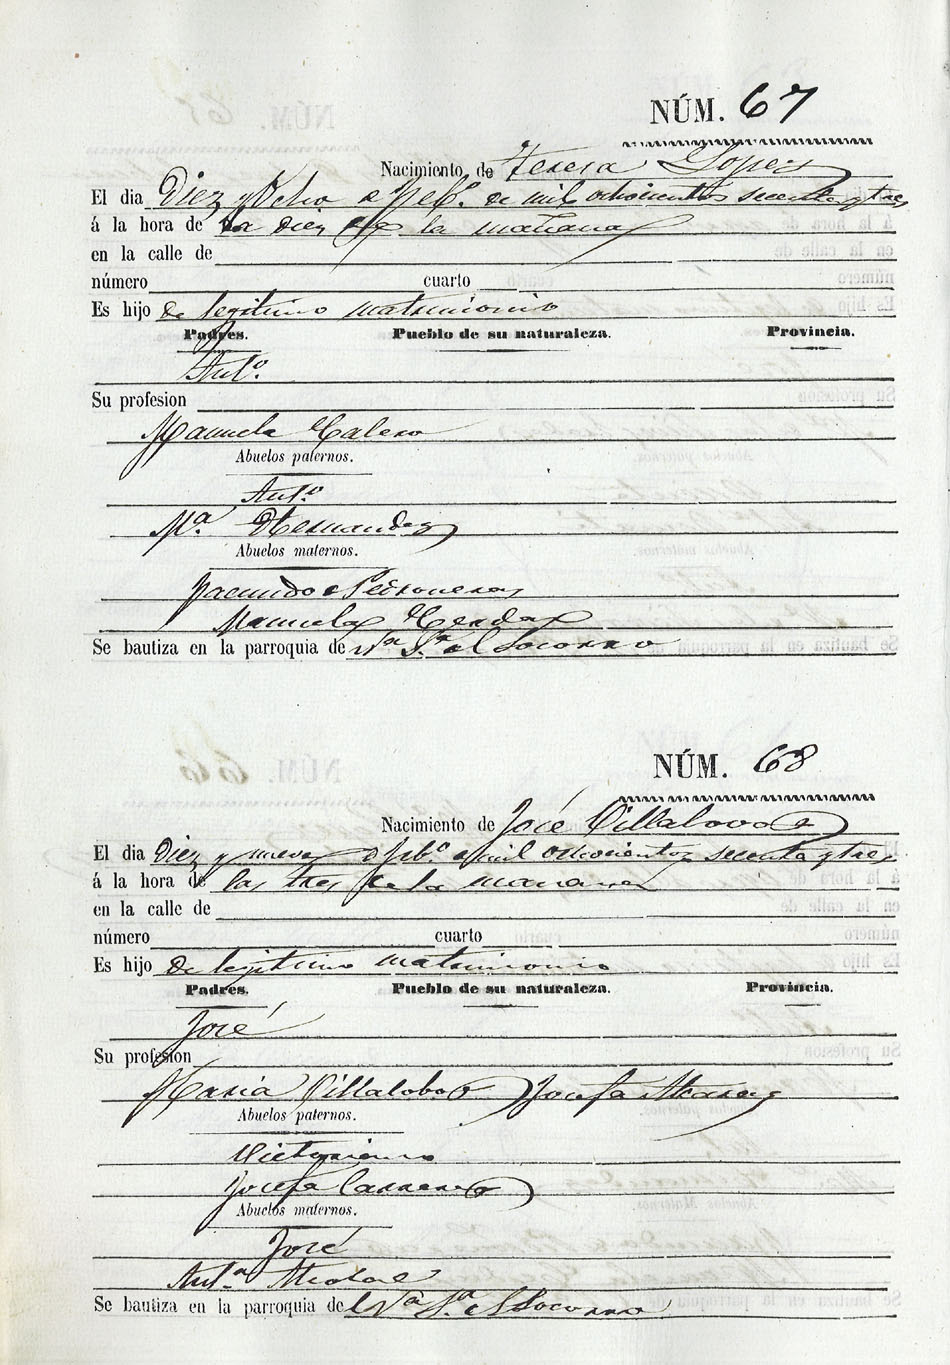 NÚM. 67
Nacimiento de Teresa Lopez
El dia Diez y Ocho de Feb.º de mil ochocientos secenta y tres
á la hora de la diez de la mañana
en la calle de
número cuarto
Es hijo de legitimo matrimonio
Padres. Pueblo de su naturaleza. Provincia.
Ant.º
Su profesion
Manuela Calero
Abuelos paternos.
Ant.º
M.ª Hernandez
Abuelos maternos.
Facundo
Manuela
Se bautiza en la parroquia de N.ª S.ª del Socorro
NÚM. 68
Nacimiento de José Villalovos
El dia Diez y nueve de Feb.º de mil ochocientos secenta y tres
á la hora de las tres de la mañana
en la calle de
número cuarto
Es hijo de legitimo matrimonio
Padres. Pueblo de su naturaleza. Provincia.
José
Su profesion
Maria Villalobos Josefa
Abuelos paternos.
Victoriano
Josefa Carrera
Abuelos maternos.
José
Ant.ª
Se bautiza en la parroquia de N.ª S.ª del Socorro